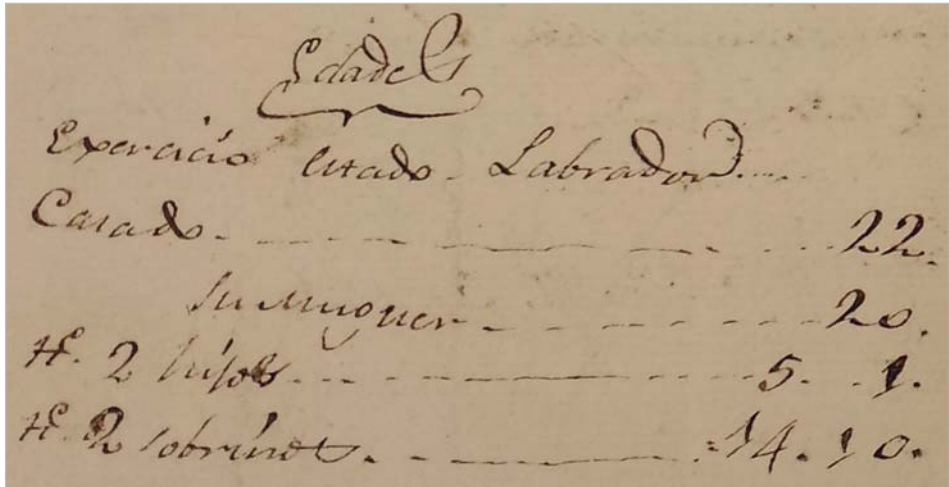 Edades
Exercicio estado - Labrador....
Casado. - - - - - - - - 22.
su muguer - - - - - - - 20.
Hº. 2 hijos. - - - - - - - 5. .1.
Hº. 2 sobrinos. - - - - - 14. 10.